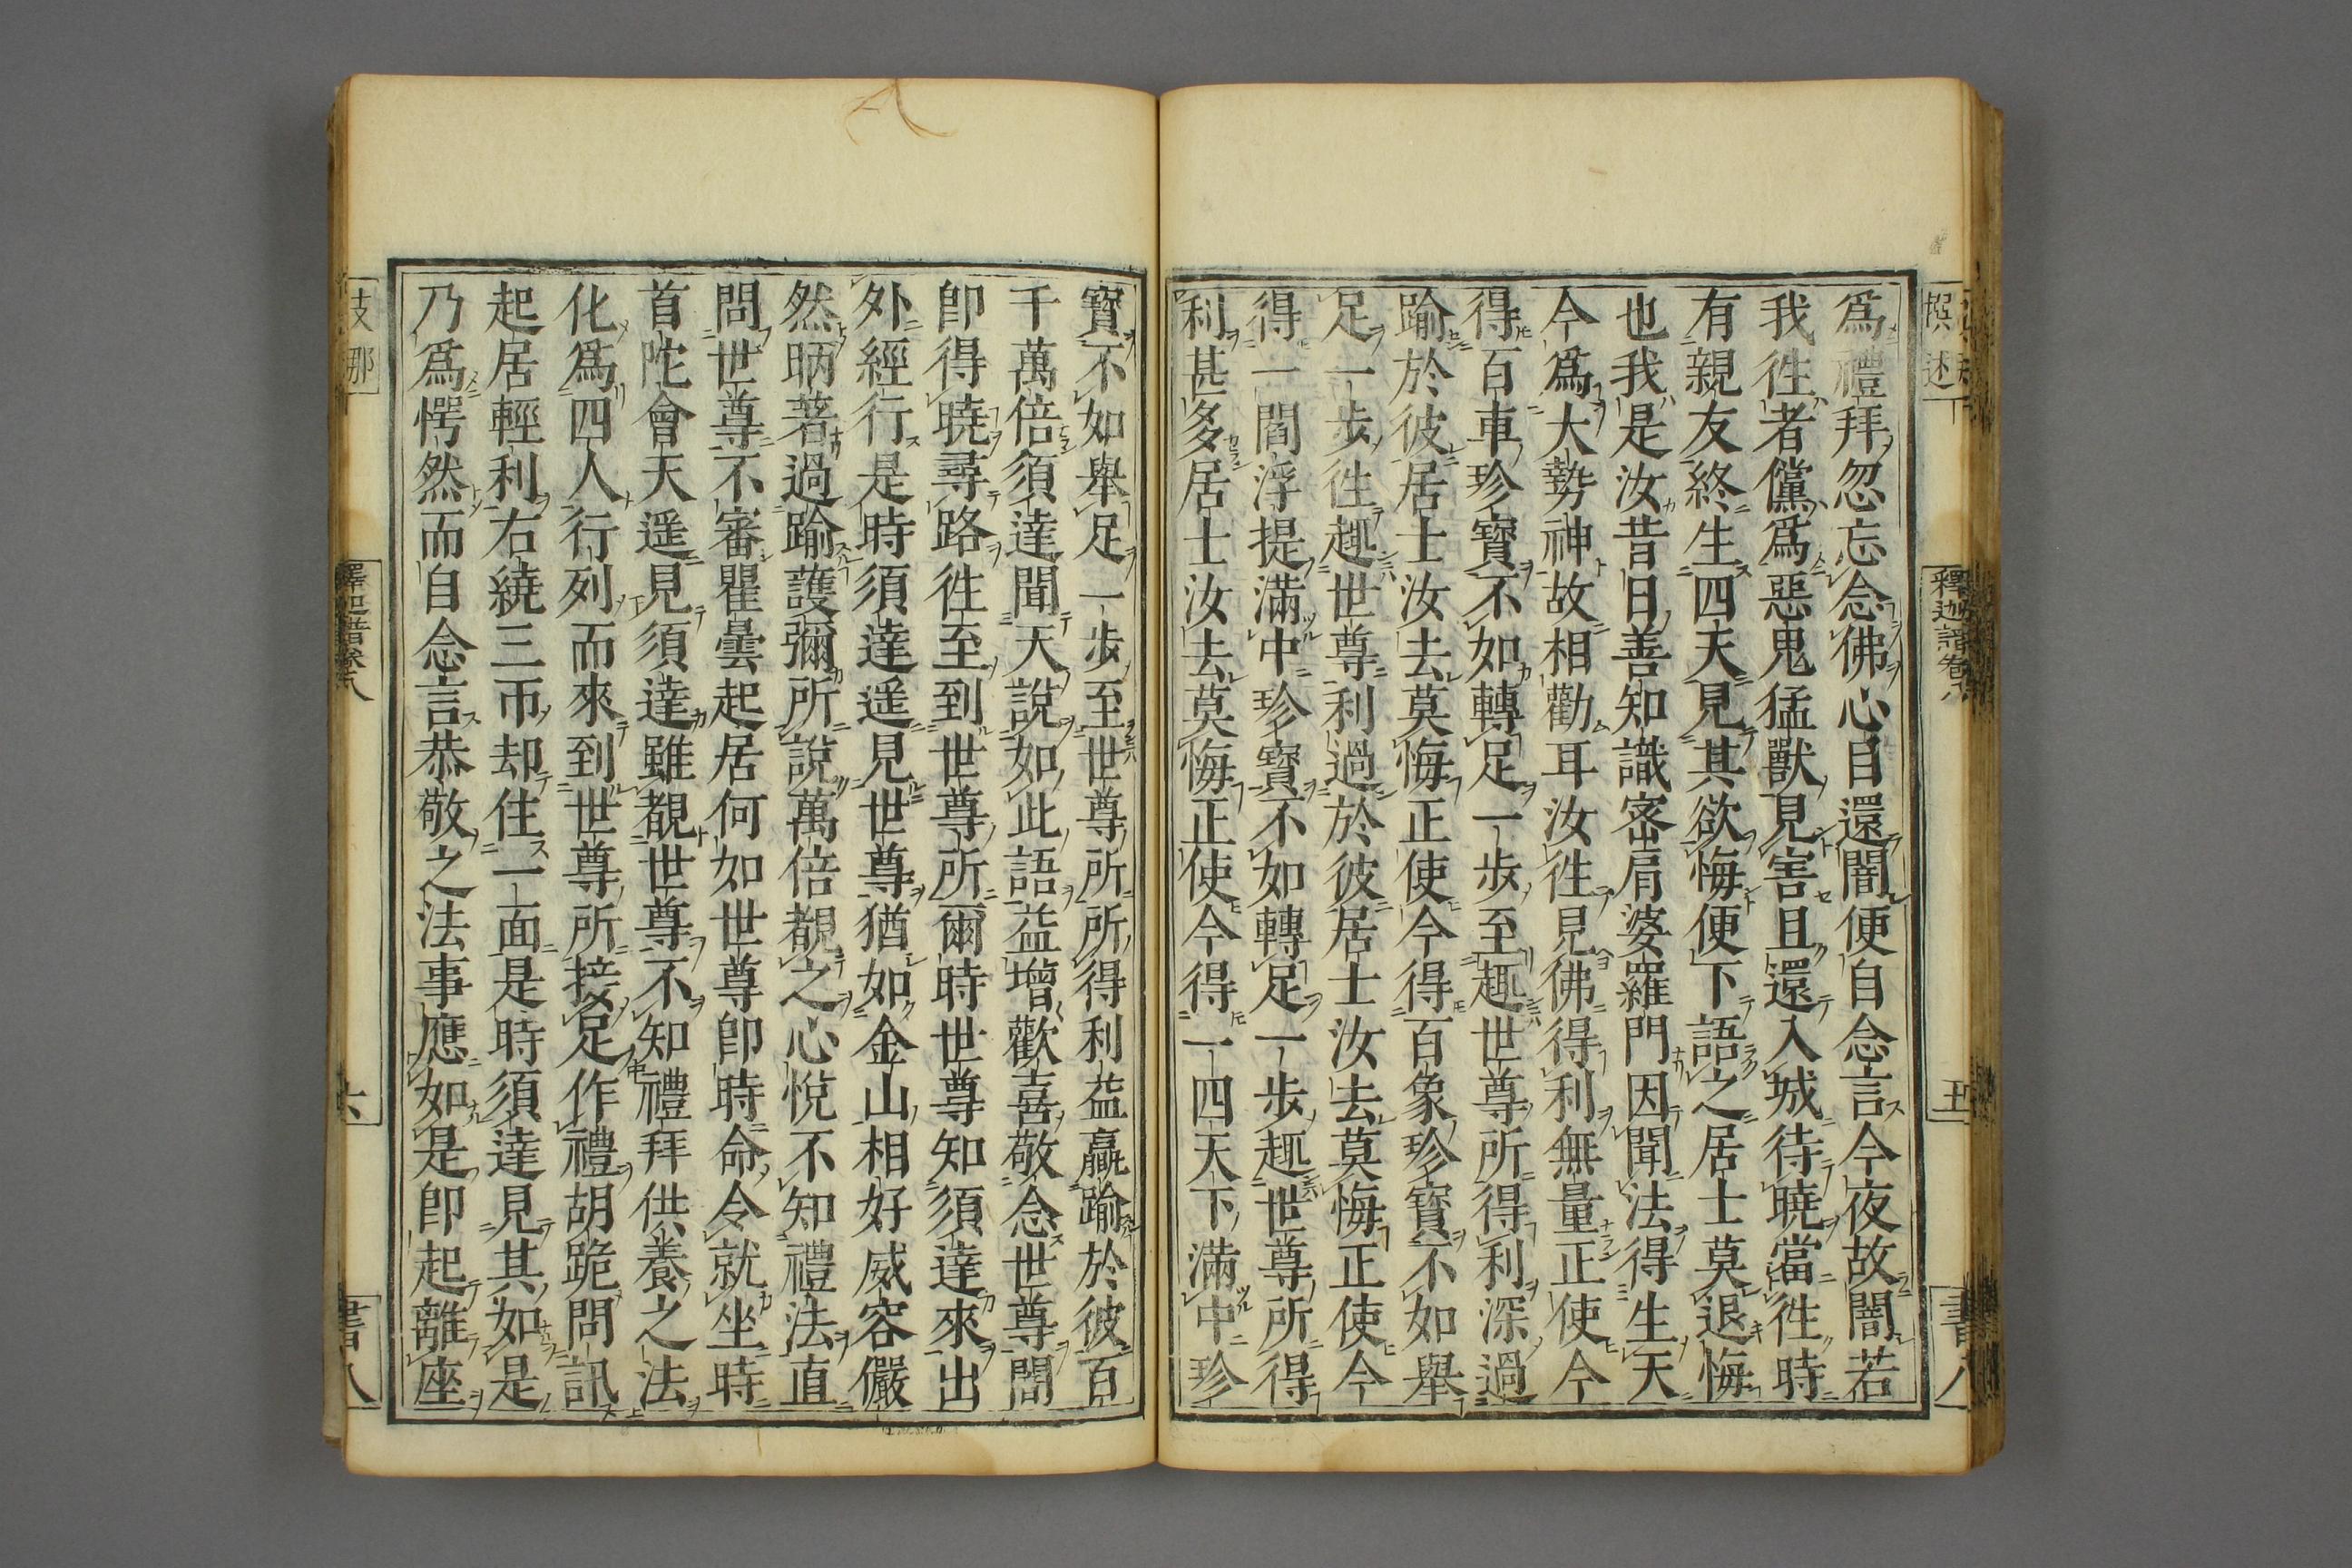 爲禮拜忽忘念佛心自還闇便自念言今夜故闇若
我徃者儻爲惡鬼猛獸見害且還入城待曉當徃時
有親友終生四天見其欲悔便下語之居士莫退悔
也我是汝昔日善知識宻肩婆羅門因聞法得生天
今爲大勢神故相勸耳汝徃見佛得利無量正使今
得百車珍寶不如轉足一歩至趣世尊所得利深過
踰於彼居士汝去莫悔正使今得百象珍寶不如舉
足一歩徃趣世尊利過於彼居士汝去莫悔正使今
得一閻浮提滿中珍寶不如轉足一歩趣世尊所得
利甚多居士汝去莫悔正使今得一四天下滿中珍
寶不如舉足一歩至世尊所所得利益贏踰於彼百
千萬倍須達聞天說如此語益增歡喜敬念世尊闇
卽得曉尋路徃至到世尊所爾時世尊知須達來出
外經行是時須達遥見世尊猶如金山相好威容儼
然昞著過踰護彌所說萬倍覩之心悅不知禮法直
問世尊不審瞿曇起居何如世尊卽時命令就坐時
首陀會天遥見須達雖覩世尊不知禮拜供養之法
化爲四人行列而來到世尊所接足作禮胡跪問訊
起居輕利右繞三帀却住一面是時須達見其如是
乃爲愕然而自念言恭敬之法事應如是卽起離座
撰述
釋迦譜卷八
五
書八
支那
釋迦譜卷八
六
書八